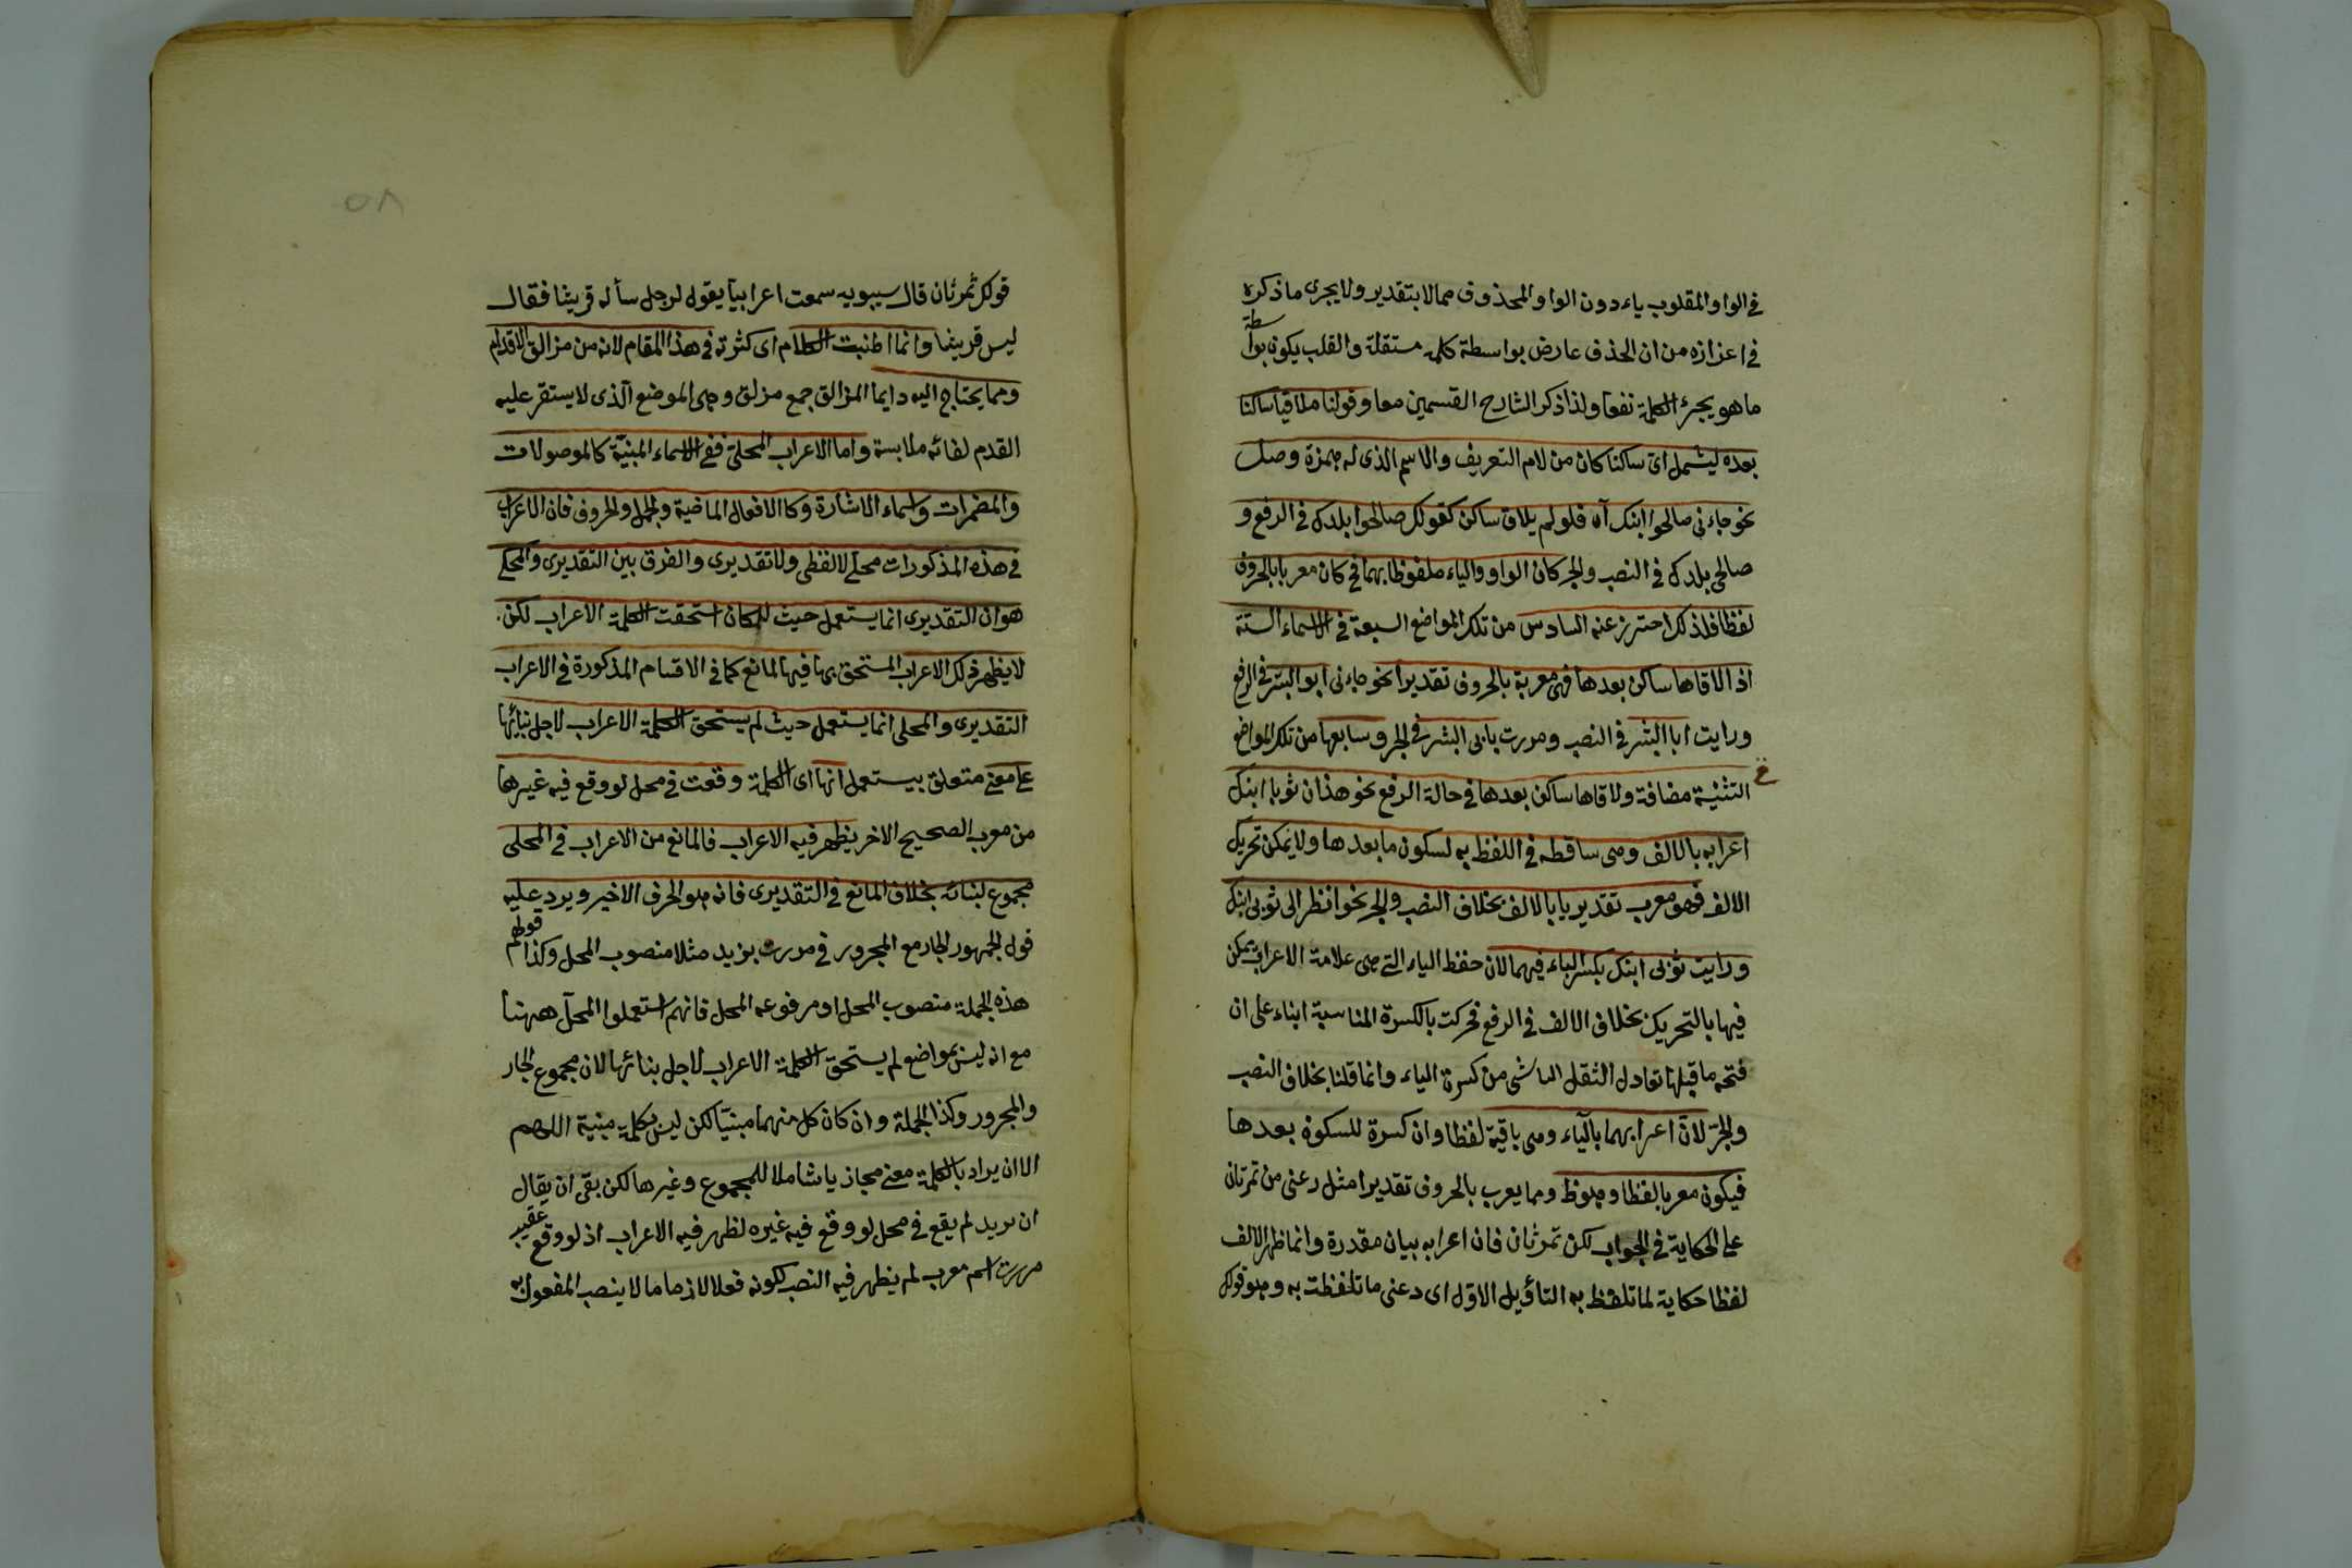 في الواو المقلوب ياء دون الواو المحذوف مما لا بتقدير ولا يجرى ما ذكره
في اعزازه من ان الحذف عارض بواسطة كلمة مستقلة والقلب يكون بواسطة
ما هو يجرئ الكلمة نفعا ولذا ذكر الشارح القسمين معا وقولنا ملاقيا ساكنا
بعده ليشمل اىّ ساكنا كان من لام التعريف والاسم الذى له همزة وصل
نحو جاءنى صالحوا ابنك آه فلو لم يلاق ساكن كقولك صالحوا بلدك في الرفع و
صالحى بلدك في النصب والجر كان الواو والياء ملفوظا بهما فح كان معربا بالحروف
لفظا فلذلك احترز عنه السادس من تلك المواضع السبعة في الاسماء الستة
اذا لاقاها ساكن بعدها فهى معربة بالحروف تقديرا نحو جاءنى ابو البشر في الرفع
ورايت ابا البشر في النصب ومررت بابى البشر في الجر وسابعها من تلك المواضع
التثنية مضافة ولاقاها ساكن بعدها في حالة الرفع نحو هذان ثوبا ابنك
اعرابه بالالف وهى ساقطه في اللفظ به لسكون ما بعدها ولا يمكن تحريك
الالف فهو معرب تقديريا بالالف بخلاف النصب والجر نحو انظر الى ثوبى ابنك
ورايت ثوبى ابنك بكسر الياء فيهما لان حفظ الياء التى هى علامة الاعراب يمكن
فيها بالتحريك بخلاف الالف في الرفع فحركت بالكسرة المناسبة ابناء على ان
فتحه ما قبلها تعادل الثقل الناشى من كسرة الياء وانما قلنا بخلاف النصب
والجرّ لانّ اعرابهما بالياء وهى باقية لفظا وان كسرة للسكون بعدها
فيكون معربا لفظا وملفوظ ومما يعرب بالحروف تقديرا مثل دعنى من تمرتان
على الحكاية في الجواب لكن تمرتان فان اعرابه ببيان مقدرة وانما ظهر الالف
لفظا حكاية لما تلفظ به التأويل الاوّل اى دعنى ما تلفظت به وهو قولك
قولك تمرتان قال سيبويه سمعت اعرابيا يقول لرجل سأله قريشا فقال
ليس قريشا وانما اطنبت الكلام اى كثرته في هذا المقام لانه من مزالق الاقدام
ومما يحتاج اليه دايما المزالق جمع مزلق وهى الموضع الّذى لا يستقر عليه
القدم لغائه ملابسة واما الاعراب المحلىّ ففى الاسماء المبنيّة كالموصولات
والمضمرات واسماء الاشارة وكالافعال الماضية والجمل والحروف فان الاعراب
في هذه المذكورات محلى لا لفظى ولا تقديرى والفرق بين التقديرى والمحلى
هو ان التقديرى انما يستعمل حيث للمكان استحقت الكلمة الاعراب لكن
لا يظهر ذلك الاعراب المستحق بها فيها لمانع كما في الاقسام المذكورة في الاعراب
التقديرى والمحلى انما يستعمل حيث لم يستحق الكلمة الاعراب لاجل بنائها
على معنى متعلق بيستعمل انها اى الكلمة وقعت في محل لو وقع فيه غيرها
من معرب الصحيح الاخر يظهر فيه الاعراب فالمانع من الاعراب في المحلى
مجموع لبنائه بخلاف المانع في التقديرى فانه هو الحرف الاخير ويرد عليه
قول الجمهور الجار مع المجرور في مررت بزيد مثلا منصوب المحل وكذا قولهم
هذه الجملة منصوب المحل او مرفوعه المحل فانهم استعملوا المحلّ ههنا
مع انه ليس بمواضع لم يستحق الكلمة الاعراب لاجل بنائها لان مجموع الجار
والمجرور وكذا الجملة وان كان كل منهما مبنيّا لكن ليس بكلمة مبنية اللهم
الا ان يراد بالكلمة معنى مجازيا شاملا للمجموع وغيرها لكن بقى ان يقال
ان بزيد لم يقع في محل لو وقع فيه غيره لظهر فيه الاعراب اذ لو وقع عقيب
مررت اسم معرب لم يظهر فيه النصب لكونه فعلا لازما ما لا ينصب المفعول به